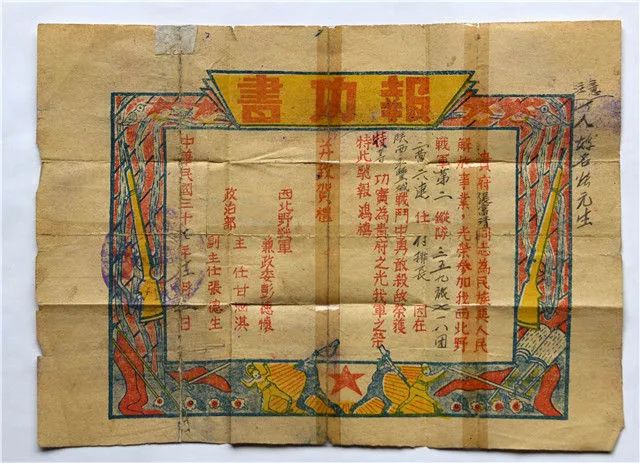 報功書
貴府張富清同志為民族與人民
解放事業，光榮參加我西北野
戰軍第二縱隊三五九旅七一八團
六連任付排長因在
陝西戰鬥中勇敢殺敵故榮獲
特等功實為貴府之光我軍之榮
特此馳報鴻禧
并致賀禮
西北野戰軍
兼政委彭德懷
政治部
主任甘泗淇
副主任張德生
中華民國三十七年十二月日